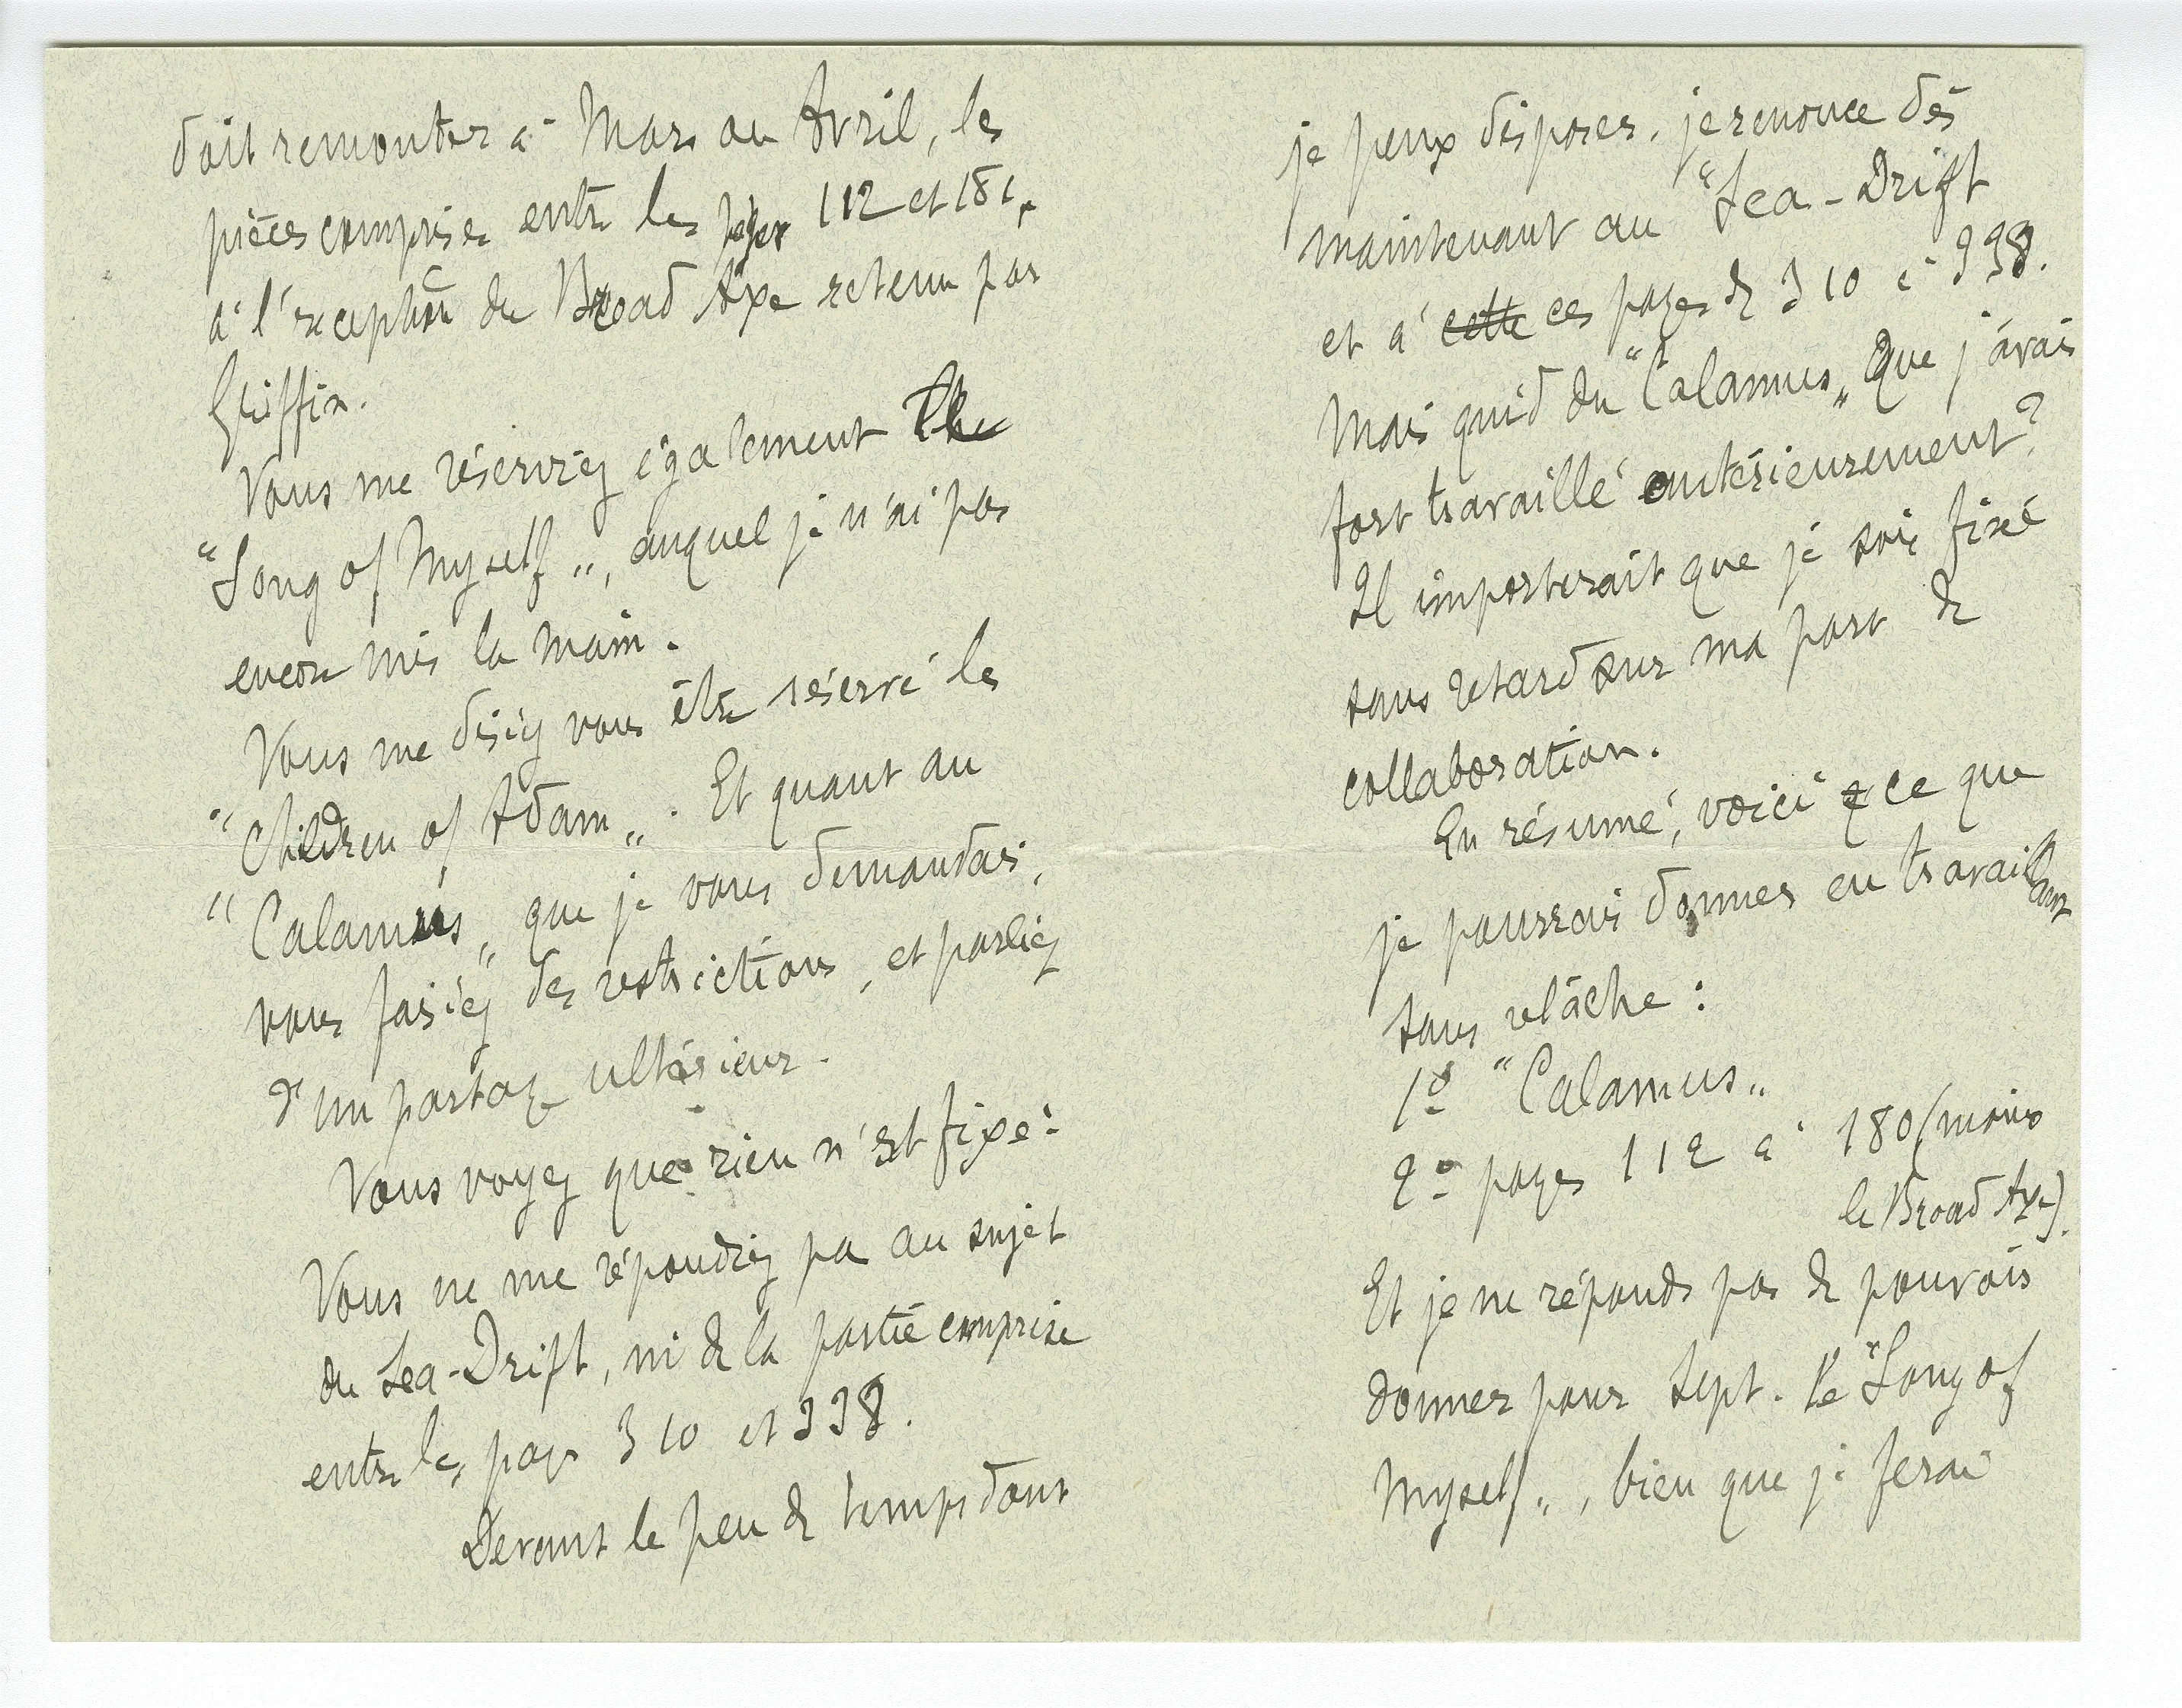 doit remonter à Mars ou Avril, les
pièces comprises entre les pages 112 et 181,
à l'exception du Broad Axe retenu par
Griffin.
Vous me réserviez également The
"Song of Myself„, auquel je n'ai pas
encore mis la main.
Vous me disiez vous être réservé les
"Children of Adam„. Et quant au
"Calamus„ que je vous demandais,
vous faisiez des restrictions, et parliez
d'un partage ultérieur.
Vous voyez que rien n'est fixé.
Vous ne me répondiez pas au sujet
du Sea-Drift, ni de la partie comprise
entre les pages 310 et 338.
Devant le peu de temps dont
je peux disposer, je renonce dès
maintenant au "Sea-Drift
et à cette ces pages de 310 à 338.
Mais quid du "Calamus„ que j'avais
fort travaillé antérieurement?
Il importerait que je sois fixé
sans retard sur ma part de
collaboration.
En résumé, voici ce que
je pourrais donner en travaillant
sans relâche :
1º "Calamus„
2º pages 112 à 180 (moins
le Broad Axe).
Et je ne réponds pas de pouvoir
donner pour Sept. le "Song of
Myself„, bien que je ferai